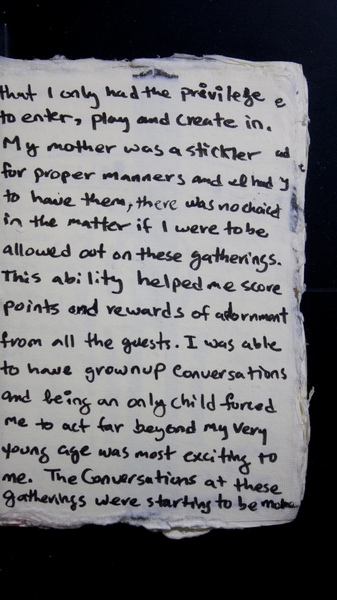 that I only had the privilege e
to enter, play and create in.
My mother was a stickler ad
for proper manners and I had
to have them, there was no choice
in the matter if I were to be
allowed out on these gatherings.
This ability helped me score
points and rewards of adornment
from all the guests. I was able
to have grownup conversations
and being an only child forced
me to act far beyond my very
young age was most exciting to
me. The Conversations at these
gatherings were starting to be